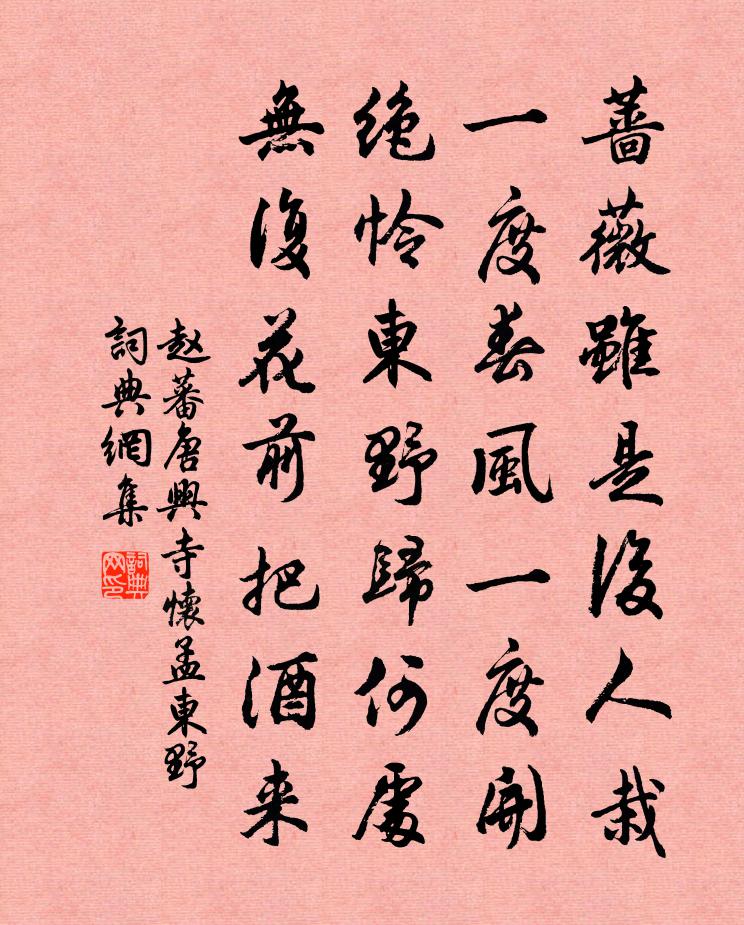 薔薇雖是後人栽
一度春風一度開
絶怜東野歸何處
無復花前把酒来
赵蕃唐興寺懷孟東野
詞典網集
詞典网印